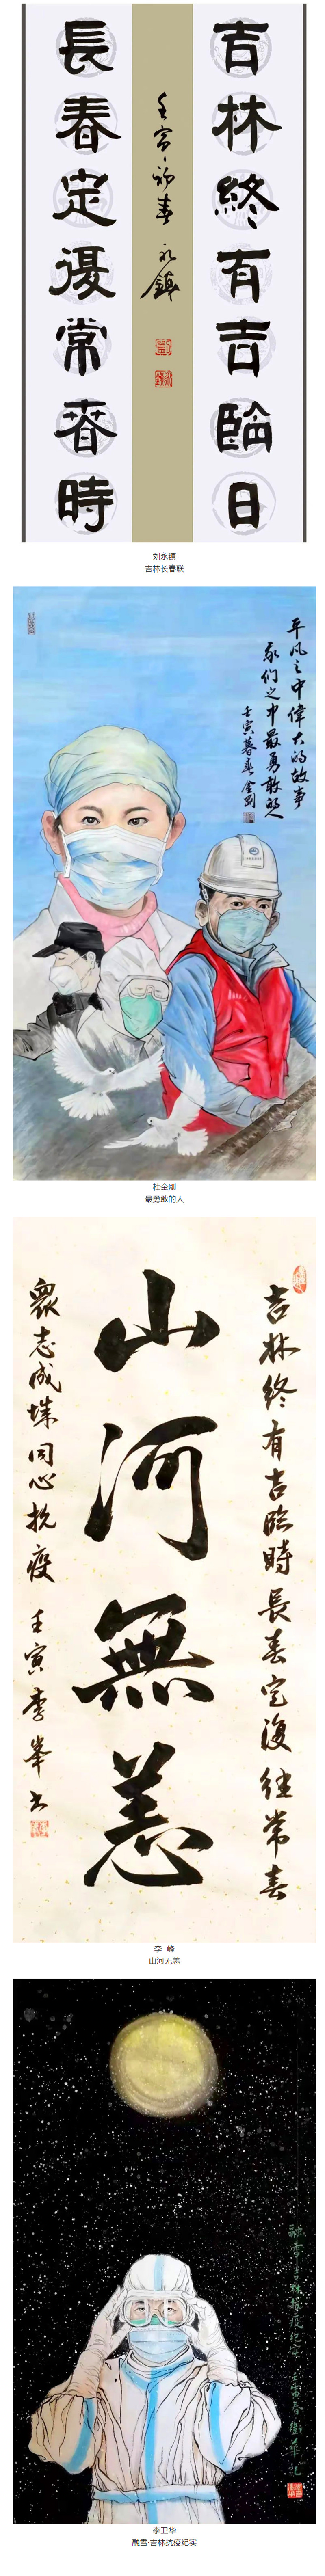 吉林終有吉臨日
長春定復常春時
壬寅初春 永鎮
刘永镇
吉林长春联
平凡之中偉大的故事
我们之中最勇敢的人
壬寅暮春 金剛
杜金刚
最勇敢的人
吉林終有吉临時長春定復往常春
山河無恙
眾志成城同心抗疫 壬寅李峰书
李 峰
山河无恙
李卫华
融雪·吉林抗疫纪实